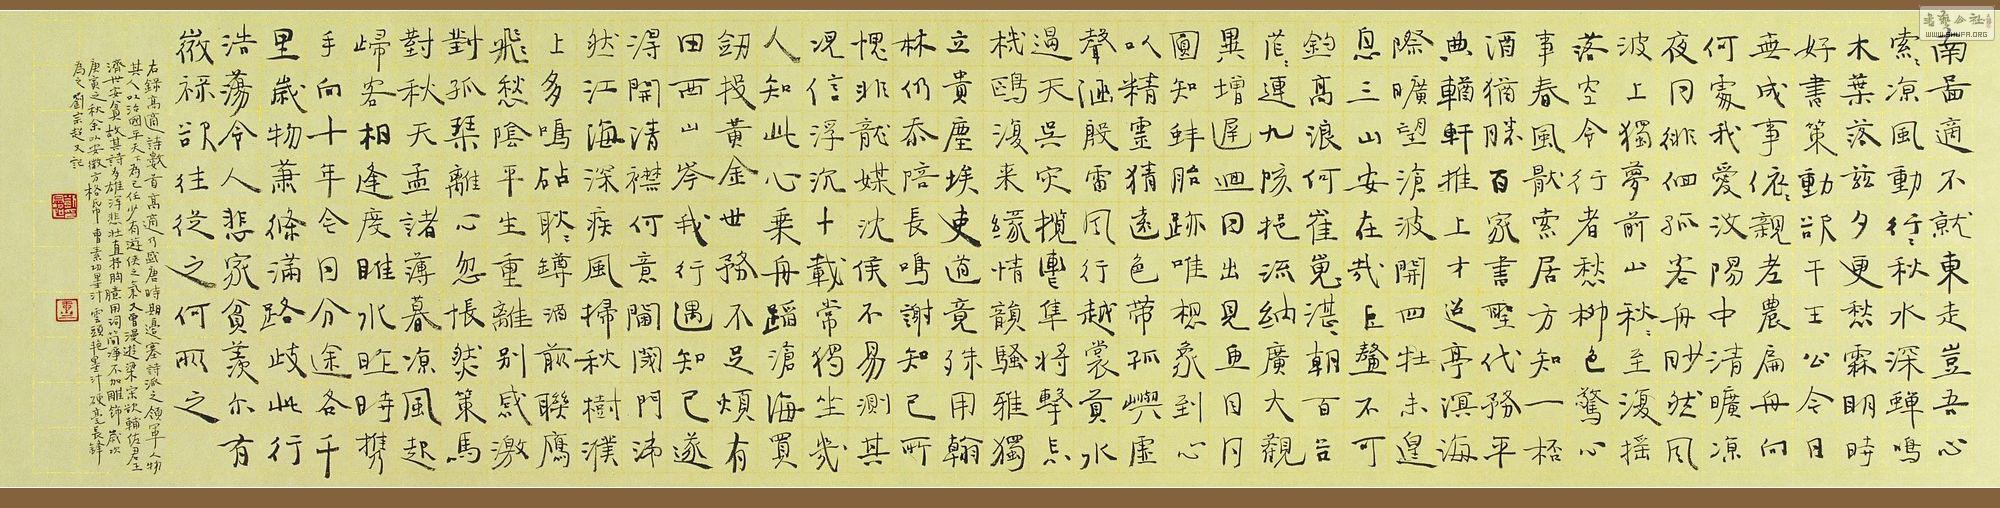 南啚適不就東走豈吾心
索〻凉風動行〻秋水深蟬鳴
木葉落茲夕更愁霖明時
好書策動欲干王公今日
無成事依〻親老農扁舟向
何處我愛汶陽中清曠凉
夜月徘徊孤客舟眇然風
波上獨夢前山秋〻至復搖
落空令行者愁柳色驚心
事春風厭索居方知一杯
酒猶勝百家書聖代務平
典輶軒推上才迢亭溟海
際曠望滄波開四牡未遑
息三山安在哉巨鰲不可
釣高浪何崔嵬湛〻朝百谷
茫〻連九陔挹流納廣大觀
異增遲迴日出見魚目月
圓知蚌胎跡唯想象到心
以精靈猜遠色帶孤嶼虛
聲涵殷雷風行越裳貢水
遏天吳灾攬轡隼將擊忘
機鷗復来緣情韻騷雅獨
立貴塵埃吏道竟殊用翰
林仍忝陪長鳴謝知己所
愧非龍媒沈侯不易測其
况信浮沉十載常獨坐幾
人知此心乘舟蹈滄海買
劒投黃金世務不足煩有
田西山岑我行遇知己遂
淂開清襟何意閫閾門沛
然江海深疾風掃秋樹濮
上多鳴砧耿〻鐏酒前聯鴈
飛愁陰平生重離别感激
對孤琴離心忽悵然策馬
對秋天孟諸薄暮凉風起
歸客相逢度睢水昨時攜
手向十年今日分途各千
里歲物蕭條滿路歧此行
浩蕩令人悲家貧羡尔有
微禄欲往從之何所之
右錄高適詩數首高適乃盛唐時期邊塞詩派之領軍人物
其人以治國平天下為己任少有遊俠之氣又曾漫遊梁宋欲輔佐君王
濟世安貧故其詩多雄渾悲壯直抒胸臆用詞简淨不加雕飾歲次
庚寅之秋余以安徽方格曹素功墨汁雲頭艷墨汁硬毫長鋒
為之劉宗超又記
WWW.SHUFA.ORG